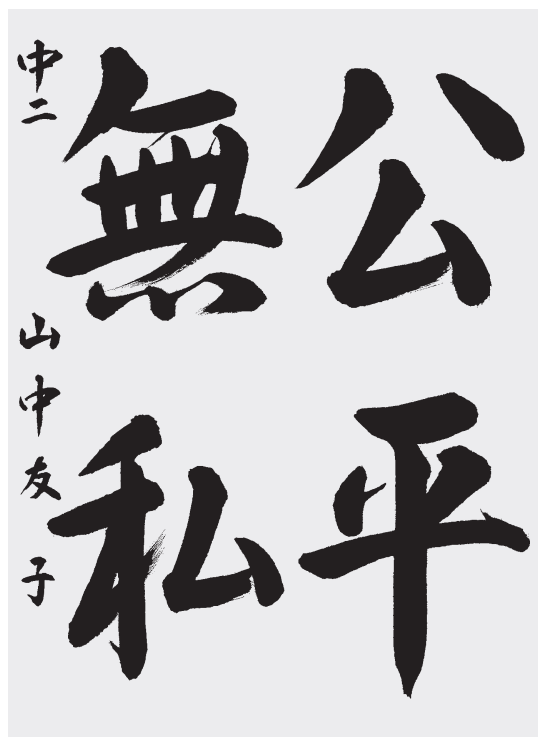 公平
無私
中二 山中友子